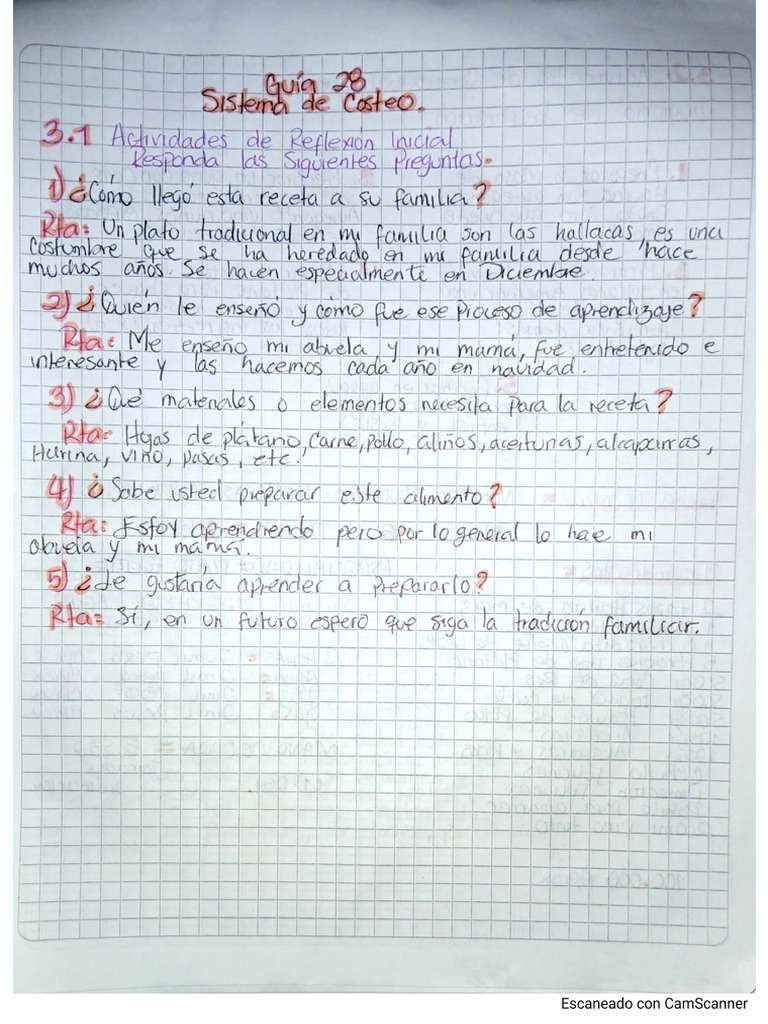 Guía 28
Sistema de Costeo.
3.1 Actividades de Reflexión Inicial
Responda las Siguientes Preguntas.
1) ¿Cómo llegó esta receta a su familia?
Rta: Un plato tradicional en mi familia son las hallacas, es una
costumbre que se ha heredado en mi familia desde hace
muchos años. Se hacen especialmente en Diciembre
2) ¿Quién le enseñó y cómo fue ese Proceso de aprendizaje?
Rta: Me enseño mi abuela y mi mamá, fue entretenido e
interesante y las hacemos cada año en navidad.
3) ¿Qué materiales o elementos necesita Para la receta?
Rta: Hojas de plátano, Carne, pollo, aliños, aceitunas, alcaparras,
Harina, vino, pasas, etc.
4) ¿Sabe usted preparar este alimento?
Rta: Estoy aprendiendo pero por lo general lo hace mi
abuela y mi mamá.
5) ¿Le gustaría aprender a Prepararlo?
Rta: Sí, en un futuro espero que siga la tradición familiar.
Escaneado con CamScanner